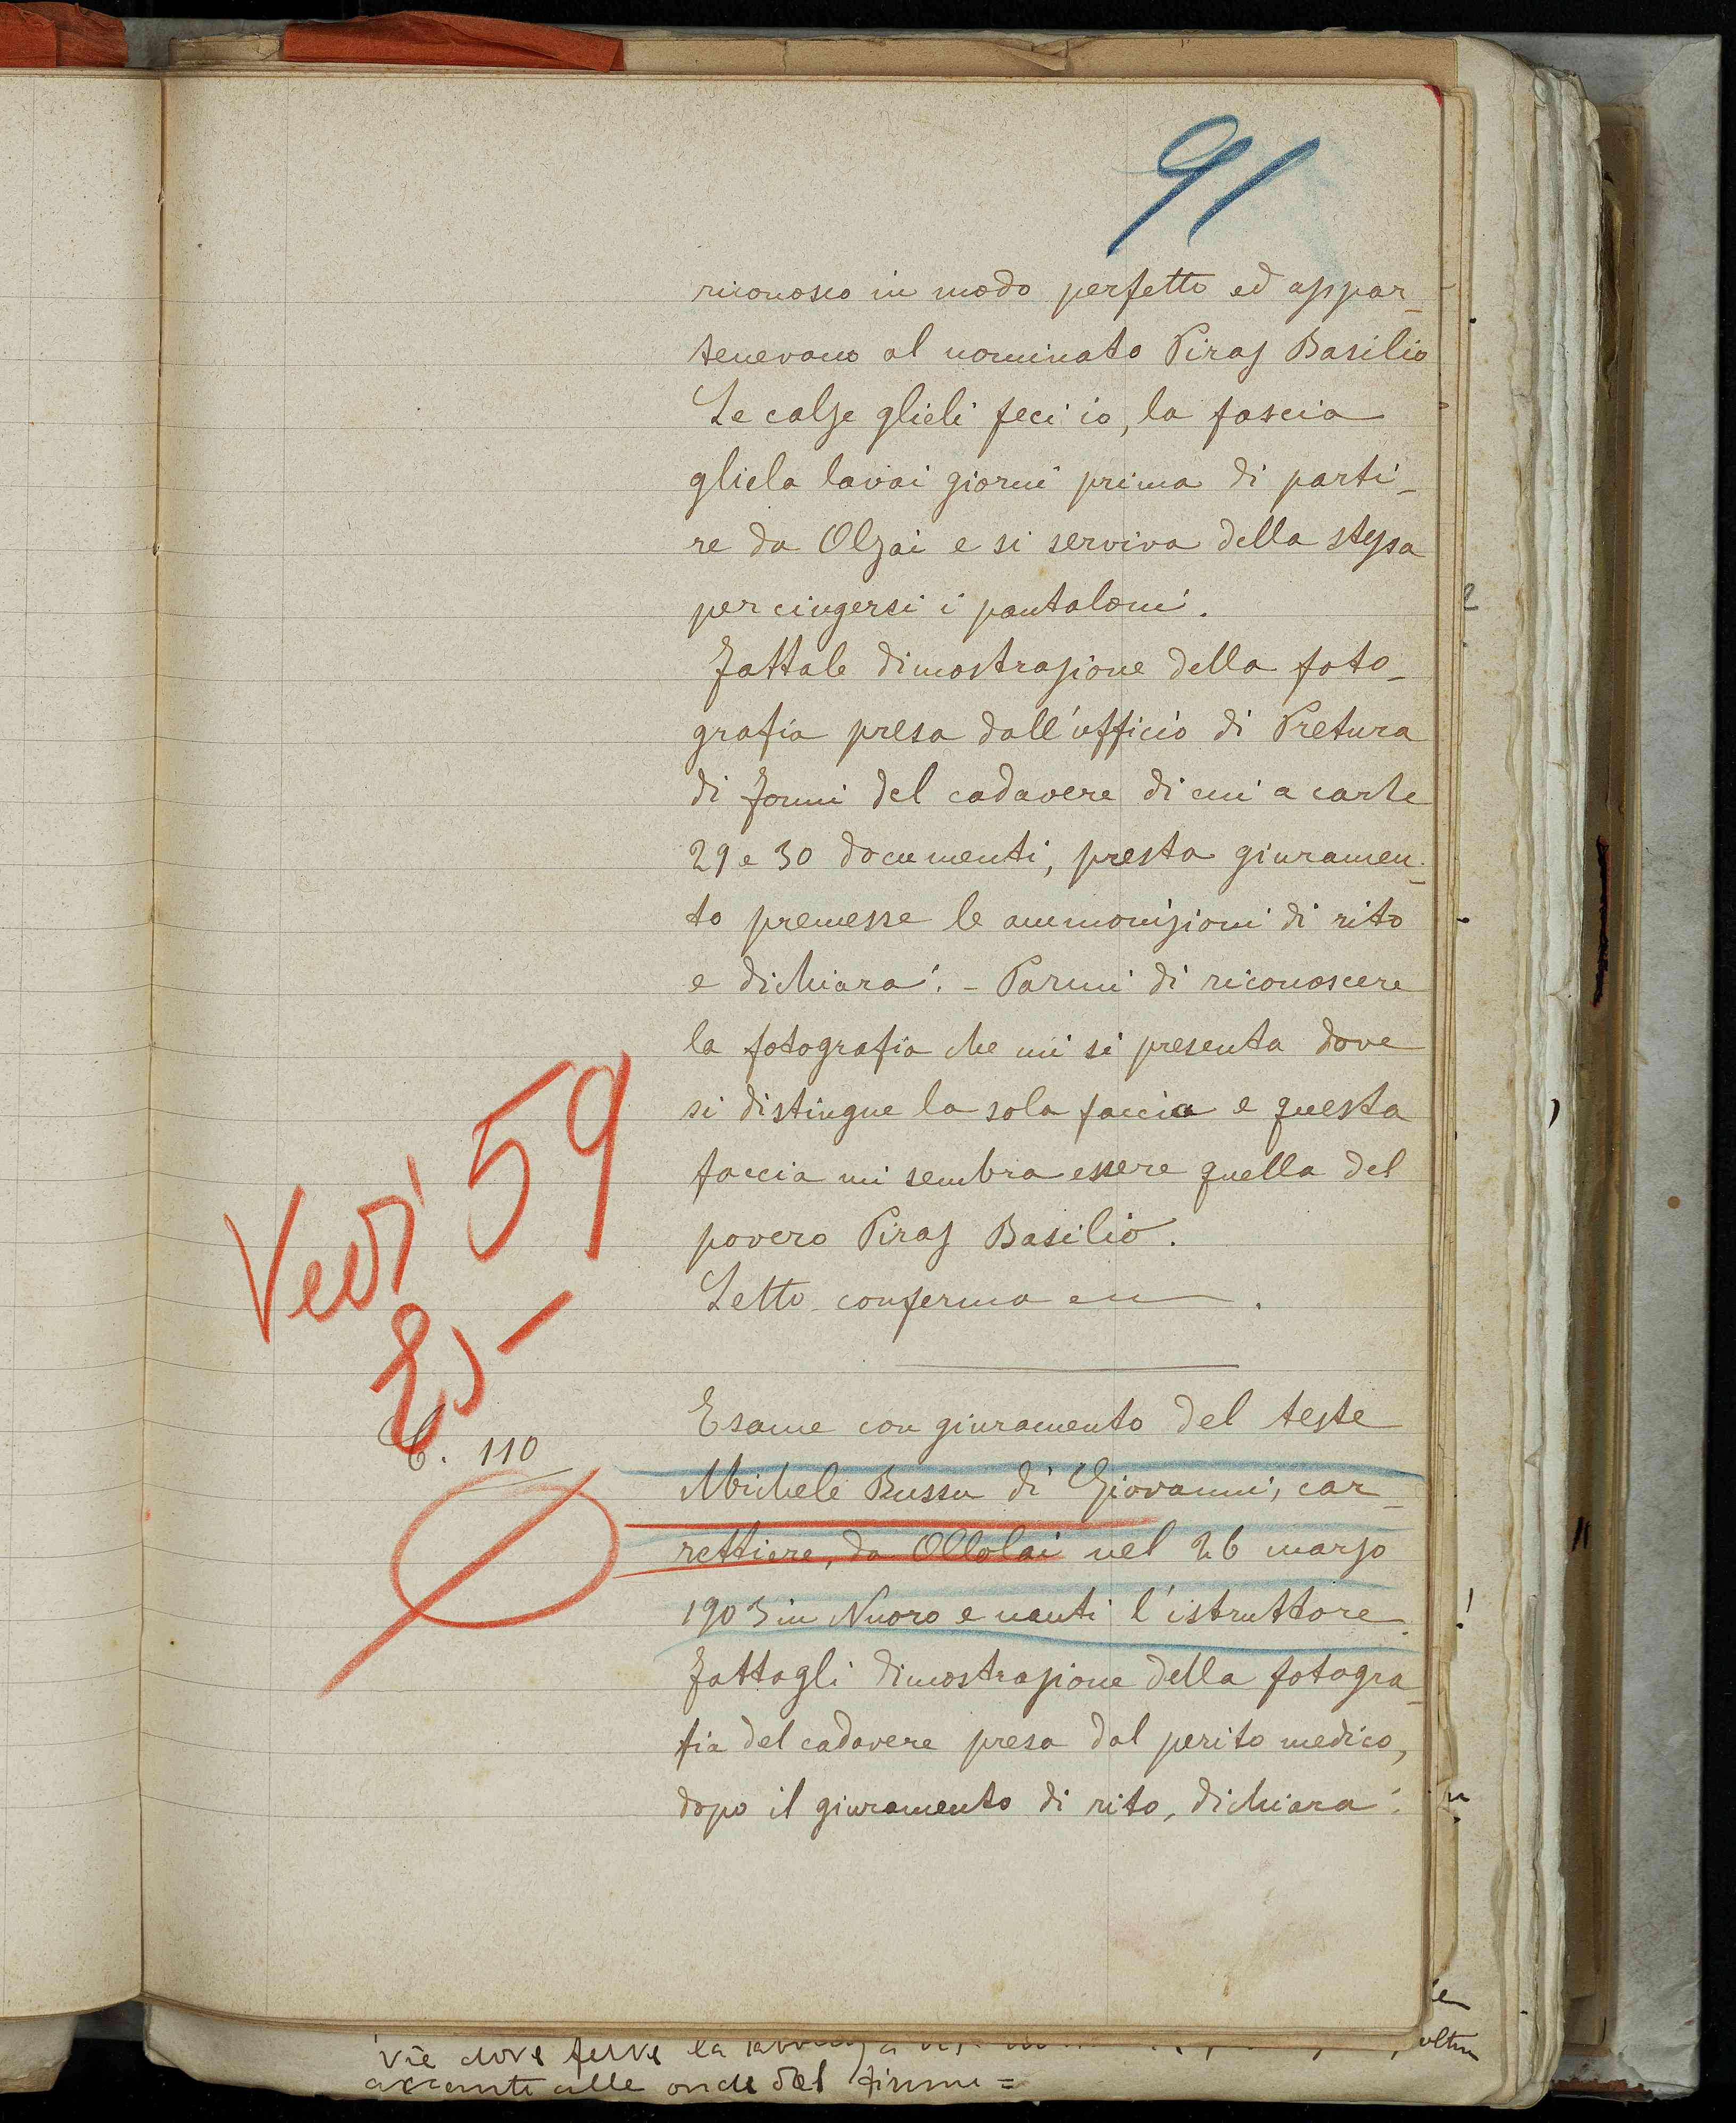 91
riconosco in modo perfetto ed appar_
tenevano al nominato Piras Basilio
Le calze glieli feci io, la fascia
gliela lavai giorni prima di parti_
re da Olzai e si serviva della stessa
per cingersi i pantaloni.
Fattale dimostrazione della foto_
grafia presa dall'ufficio di Pretura
di Fonni del cadavere di cui a carte
29 e 30 documenti, presta giuramen_
to premesse le ammonizioni di rito
e dichiara: - Parmi di riconoscere
la fotografia che mi si presenta dove
si distingue la sola faccia e questa
faccia mi sembra essere quella del
povero Piras Basilio.
Letto conferma
Vedi 59
C. 110
Esame con giuramento del teste
Michele Bussu di Giovanni, car_
rettiere, da Ollolai nel 26 marzo
1903 in Nuoro e nanti l'istruttore.
Fattagli dimostrazione della fotogra_
fia del cadavere presa dal perito medico,
dopo il giuramento di rito, dichiara:
vie dove ferve la
oltre
alle onde del fiume =